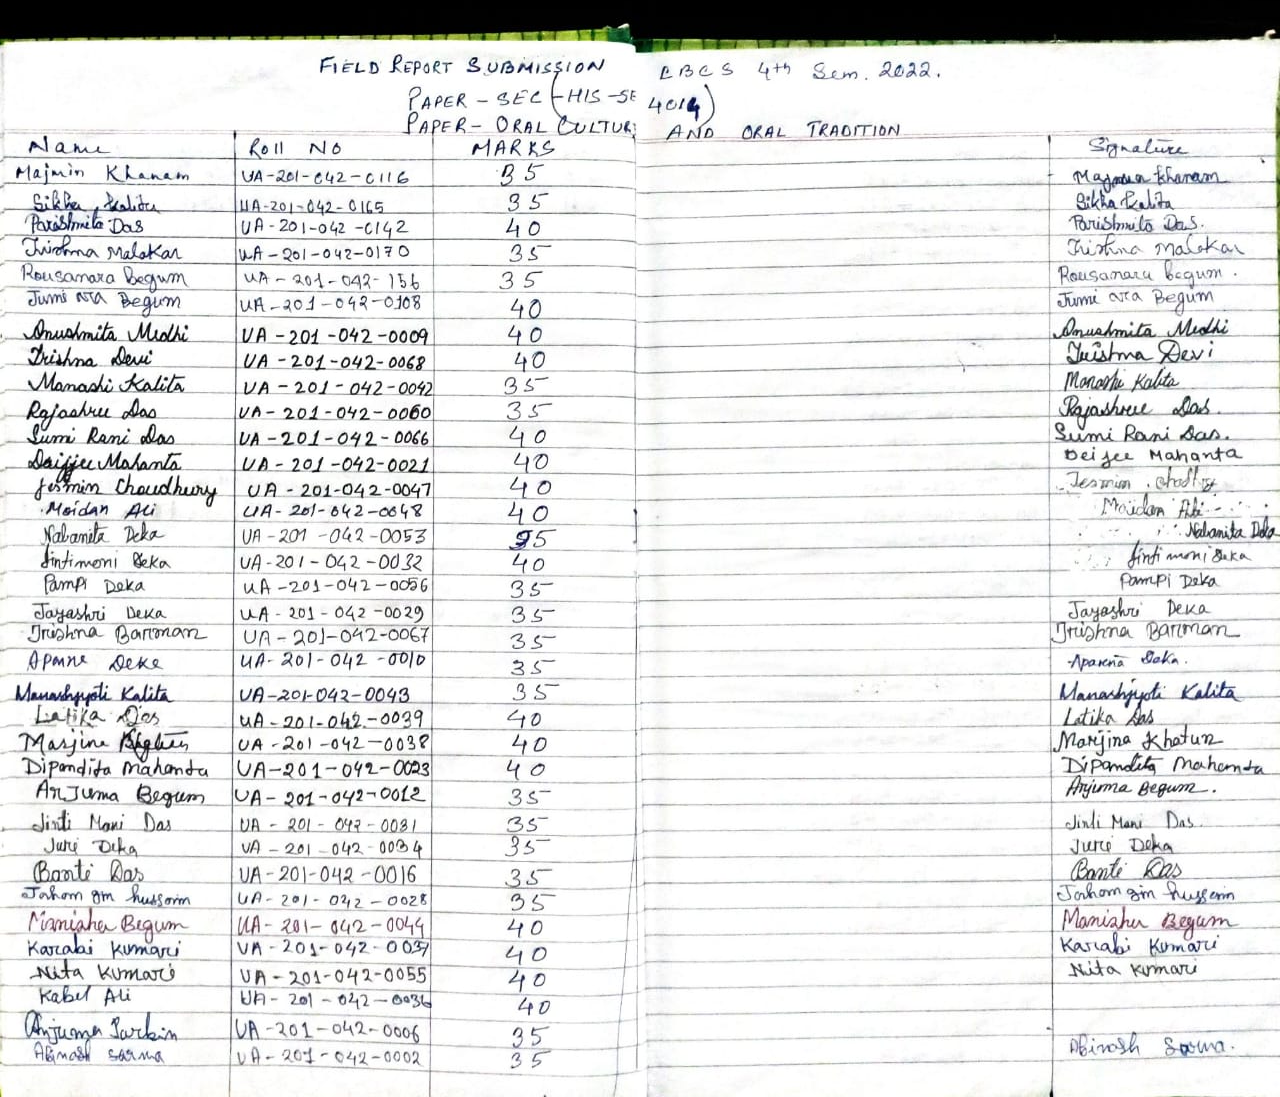 FIELD REPORT SUBMISSION CBCS 4th Sem. 2022.
PAPER - SEC (HIS-SE 4014)
PAPER- ORAL CULTURE AND ORAL TRADITION
Name Roll No MARKS Signature
Majmin Khanam UA-201-042-0116 35 Majmin Khanam
Sikha Kalita UA-201-042-0165 35 Sikha Kalita
Parishmita Das UA-201-042-0142 40 Parishmita Das.
Trishna Malakar UA-201-042-0170 35 Trishna Malakar
Rousanara Begum UA-201-042-156 35 Rousanara Begum.
Jumi ara Begum UA-201-042-0108 40 Jumi ara Begum
Anushmita Medhi UA-201-042-0009 40 Anushmita Medhi
Trishna Devi UA-201-042-0068 40 Trishna Devi
Manashi Kalita UA-201-042-0042 35 Manashi Kalita
Rajashree Das UA-201-042-0060 35 Rajashree Das.
Sumi Rani Das UA-201-042-0066 40 Sumi Rani Das.
Deijee Mahanta UA-201-042-0021 40 Deijee Mahanta
Jesmin Choudhury UA-201-042-0047 40 Jesmin
Moidan Ali UA-201-042-0048 40 Moidan Ali
Nabanita Deka UA-201-042-0053 35 Nabanita Deka
Jintimoni Deka UA-201-042-0032 40 Jintimoni Deka
Pampi Deka UA-201-042-0056 35 Pampi Deka
Jayashri Deka UA-201-042-0029 35 Jayashri Deka
Trishna Barman UA-201-042-0067 35 Trishna Barman
Aparna Deka UA-201-042-0010 35 Aparna Deka.
Manashjyoti Kalita UA-201-042-0043 35 Manashjyoti Kalita
Latika Das UA-201-042-0039 40 Latika Das
Marjina UA-201-042-0038 40 Marjina Khatun
Dipandita Mahanta UA-201-042-0023 40 Dipandita Mahanta
Arjuma Begum UA-201-042-0012 35 Arjuma Begum.
Jinti Mani Das UA-201-042-0031 35 Jinti Mani Das
Juri Deka UA-201-042-0034 35 Juri Deka
Banti Das UA-201-042-0016 35 Banti Das
Jahangir hussain UA-201-042-0028 35 Jahangir hussain
Manisha Begum UA-201-042-0044 40 Manisha Begum
Karabi Kumari UA-201-042-0037 40 Karabi Kumari
Nita Kumari UA-201-042-0055 40 Nita Kumari
Kabel Ali UA-201-042-0036 40
Anjuma Parbin UA-201-042-0006 35
Abinash Sarma UA-201-042-0002 35 Abinash Sarma.